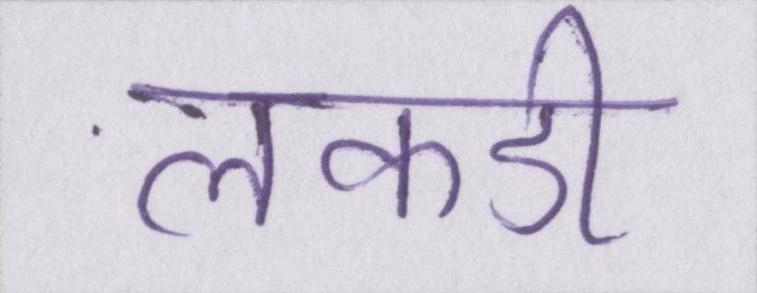 लकडी